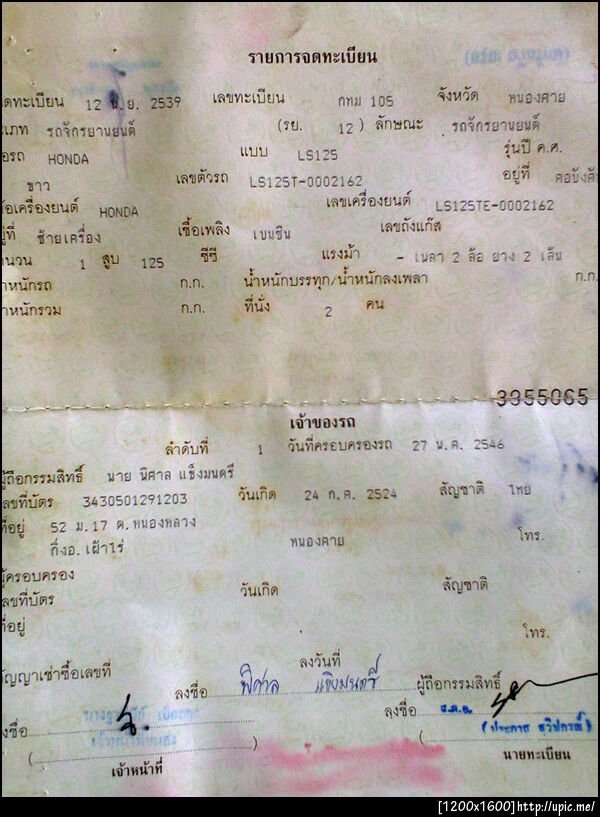 รายการจดทะเบียน
ดทะเบียน 12 2539 เลขทะเบียน กทม 105 จังหวัด หนองคาย
เภท รถจักรยานยนต์ (รย. 12 ) ลักษณะ รถจักรยานยนต์
อรถ HONDA แบบ LS125 รุ่นปี ค.ศ.
ขาว เลขตัวรถ LS125T-0002162 อยู่ที่ คอบังคับ
อเครื่องยนต์ HONDA เลขเครื่องยนต์ LS125TE-0002162
ที่ ซ้ายเครื่อง เชื้อเพลิง เบนซิน เลขถังแก๊ส
นวน 1 สูบ 125 ซีซี แรงม้า - เพลา 2 ล้อ ยาง 2 เส้น
หนักรถ ก.ก. น้ำหนักบรรทุก/น้ำหนักลงเพลา ก.ก.
หนักรวม ก.ก. ที่นั่ง 2 คน
3955065
เจ้าของรถ
ลำดับที่ 1 วันที่ครอบครองรถ 27 พ.ค. 2546
ผู้ถือกรรมสิทธิ์ นาย นิศาล แข็งมนตรี
ลขที่บัตร 3430501291203 วันเกิด 24 ก.ค. 2524 สัญชาติ ไทย
ที่อยู่ 52 ม.17 ต.หนองหลวง
กิ่งอ.เฝ้าไร่ หนองคาย โทร.
ผู้ครอบครอง
ลขที่บัตร วันเกิด สัญชาติ
ที่อยู่
โทร.
สัญญาเช่าซื้อเลขที่ ลงวันที่
ลงชื่อ พิศาล แข็งมนตรี ผู้ถือกรรมสิทธิ์
งชื่อ ลงชื่อ จ.ต.อ.
( ) (ประภาส )
เจ้าหน้าที่ นายทะเบียน
[1200x1600]http://upic.me/